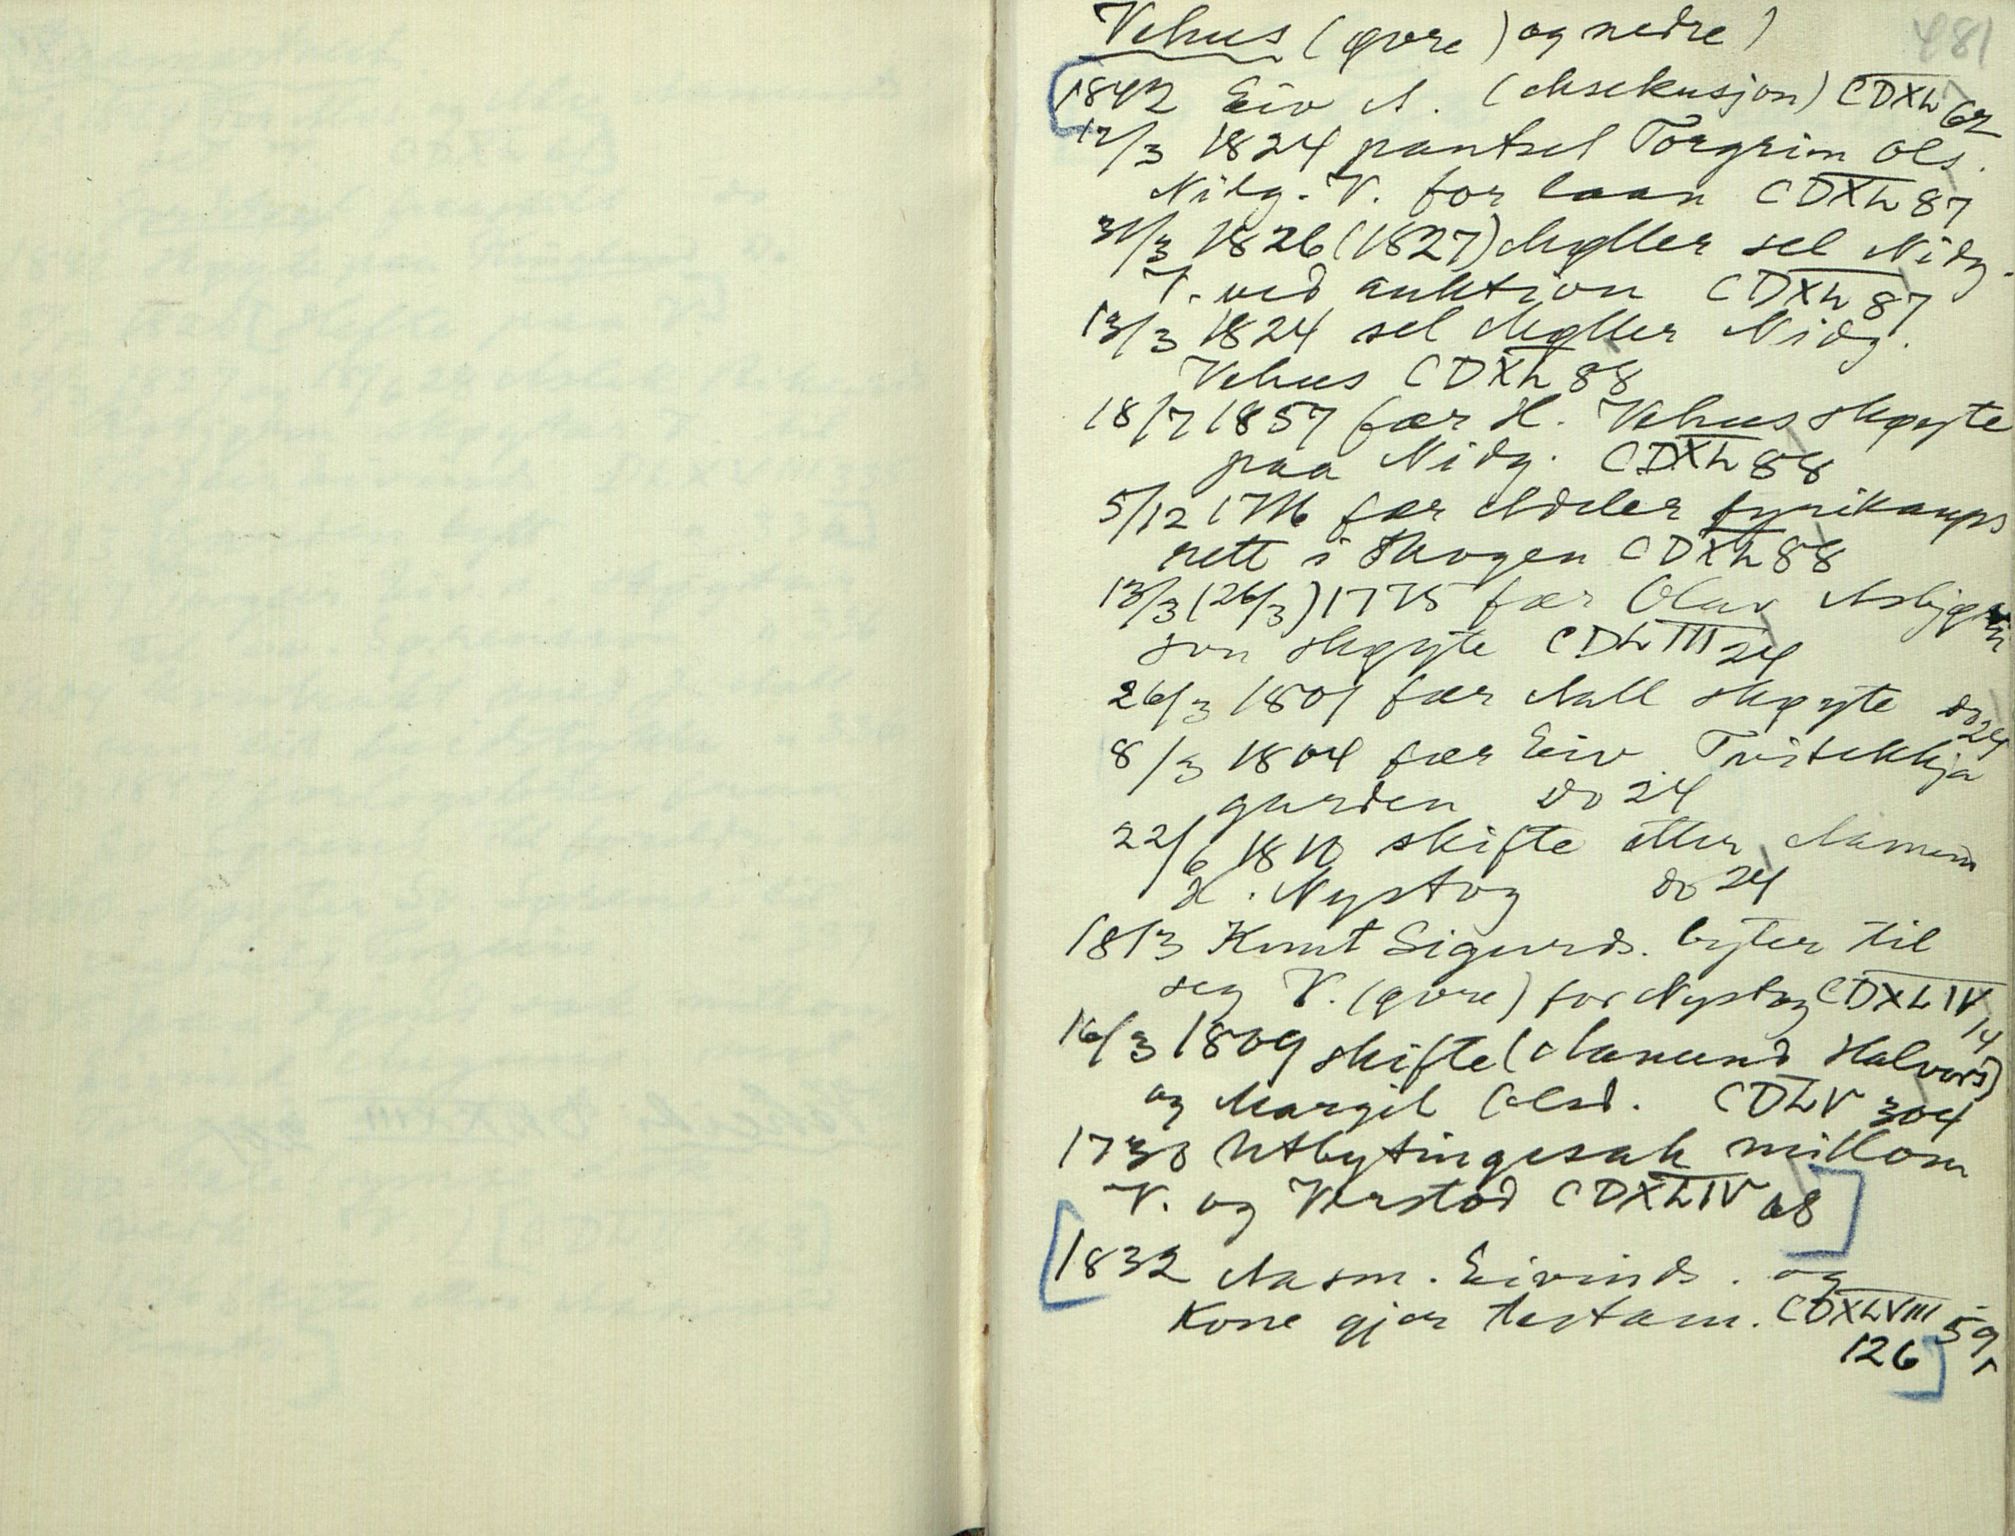 481
Vehus (øvre) og nedre)
1842 Eiv A. (eksekusjon) CDXL 62
12/3 1824 pantset Torgrim Ols.
Nidg. V. for laan CDXL 87
31/3 1826 (1827) Møller sel Nidg.
V. ved auktion CDXL 87
13/3 1824 sel Møller Nidg.
Vehus CDXL 88
18/7 1857 fær H. Vehus skøyte
paa Nidg. CDXL 88
5/12 fær Adeler fyrikaups
rett i skogen CDXL 88
13/3 (26/3) 1775 fær Olav Asbjørn
son skøyte CDLIII 24
26/3 1801 fær Nall skøyte do 24
8/3 1804 fær Eiv Tvitekkja
garden do 24
22/6 1810 skifte etter Aamun
H. Nystog do 24
1813 Knut Sigurds. byter til
seg V. (øvre) for Nystog CDXLIV 14
16/3 1809 skifte (Aamund Halvors)
og Margit Olsd. CDLV 304
1730 Utbytingssak millom
V. og Verstad CDXLIV 08
1832 Aasm. Eivinds. og
Kone gjer testam. CDXLVIII 59,
126